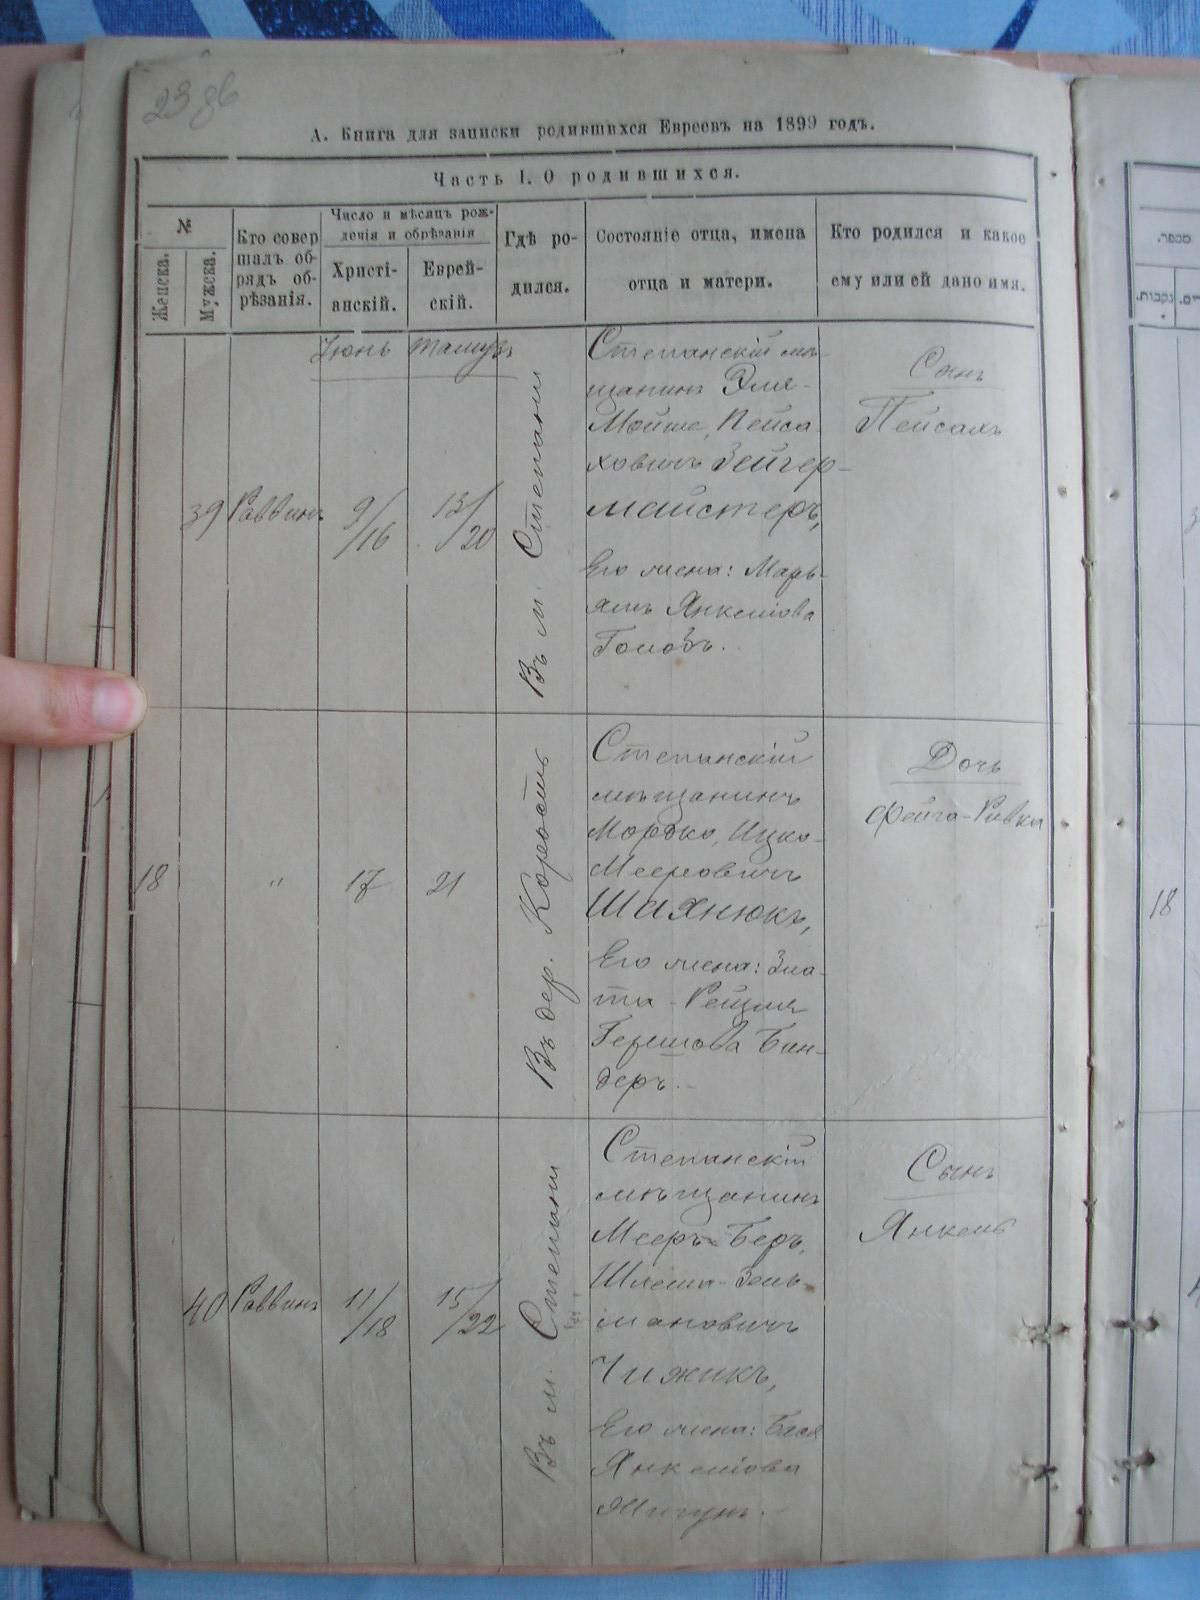 23 об
А. Книга для записки родившихся Евреевъ на 1899 годъ.
Часть I. О родившихся.
№
Женска.
Мужска.
Кто совер
шалъ об-
рядъ об-
рѣзанія.
Число и мѣсяцъ рож-
денія и обрѣзанія
Христі-
анскій.
Еврей-
скій.
Гдѣ ро-
дился.
Состояніе отца, имена
отца и матери.
Кто родился и какое
ему или ей дано имя.
Іюнь Тамузъ
39
Раввинъ
9/16
13/20
Въ м. Степани
Степанскій мѣ-
щанинъ Эля-
Мойше, Пейса-
ховичъ Зейгер-
майстеръ,
Его жена: Марь-
ямъ Янкелiова
Голобъ.
Сынъ
Пейсахъ
18
"
17
21
Въ дер. Коростъ
Степанскій
мѣщанинъ
Мордко, Ицко-
Мееровичъ
Шахнюкъ,
Его жена: Зла-
та-Рейзля
Гершова Бин-
деръ.
Дочь
Фейга-Ривка
40
Раввинъ
11/18
15/22
Въ м. Степани
Степанскій
мѣщанинъ
Мееръ-Беръ,
Шлема-Зель-
мановичъ
Чижикъ,
Его жена: Бася
Янкелiова
Сынъ
Янкель
נקבות.
18